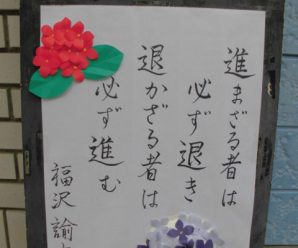 進まざる者は
必ず退き
退かざる者は
必ず進む
福沢諭